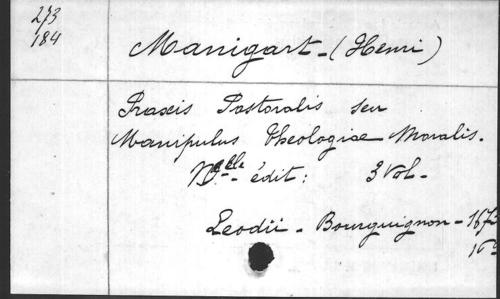 273
184
Manigart - (Henri)
Praxis Pastoralis seu
Manipulus theologiae Moralis.
Nelle - édit: 3 Vol -
Leodii - Bourguignon - 167